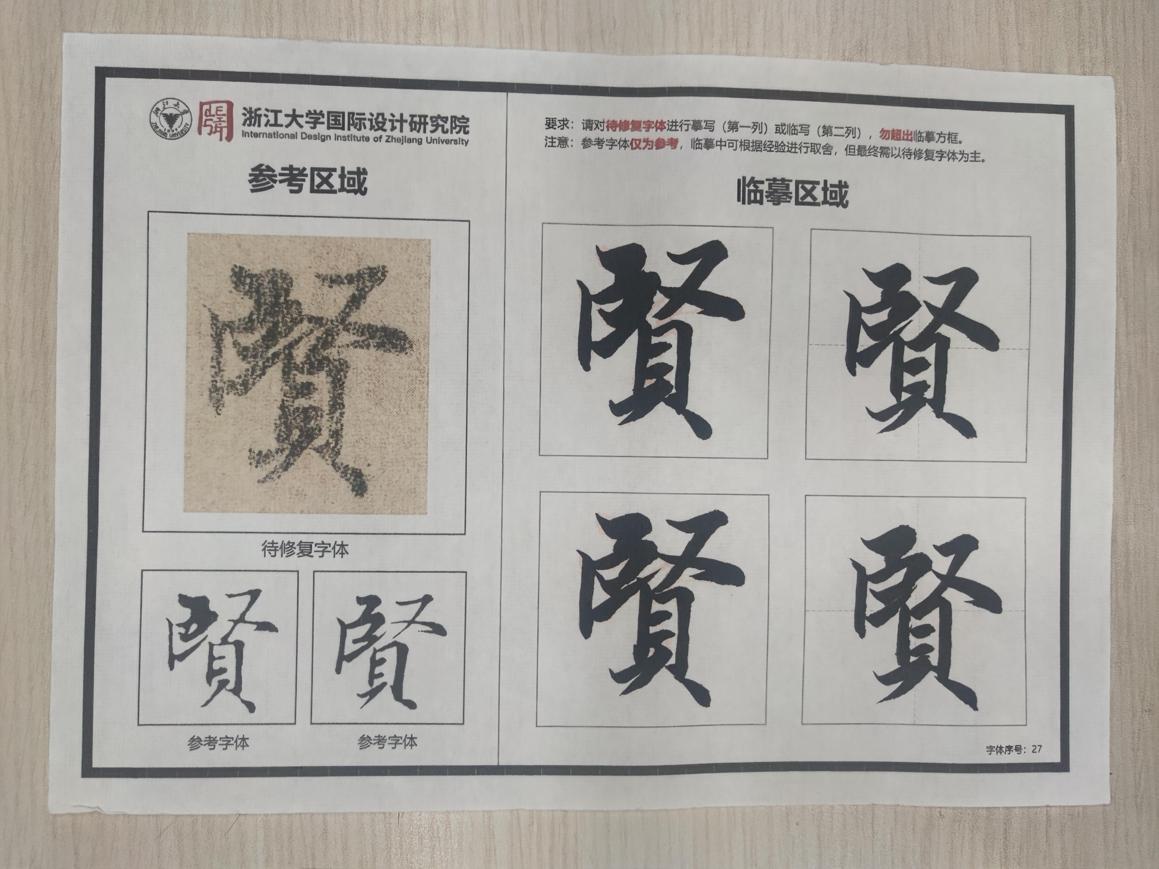 浙江大学国际设计研究院
International Design Institute of Zhejiang University
参考区域
賢
待修复字体
賢 賢
参考字体 参考字体
要求：请对待修复字体进行摹写（第一列）或临写（第二列），勿超出临摹方框。
注意：参考字体仅为参考，临摹中可根据经验进行取舍，但最终需以待修复字体为主。
临摹区域
賢 賢
賢 賢
字体序号：27